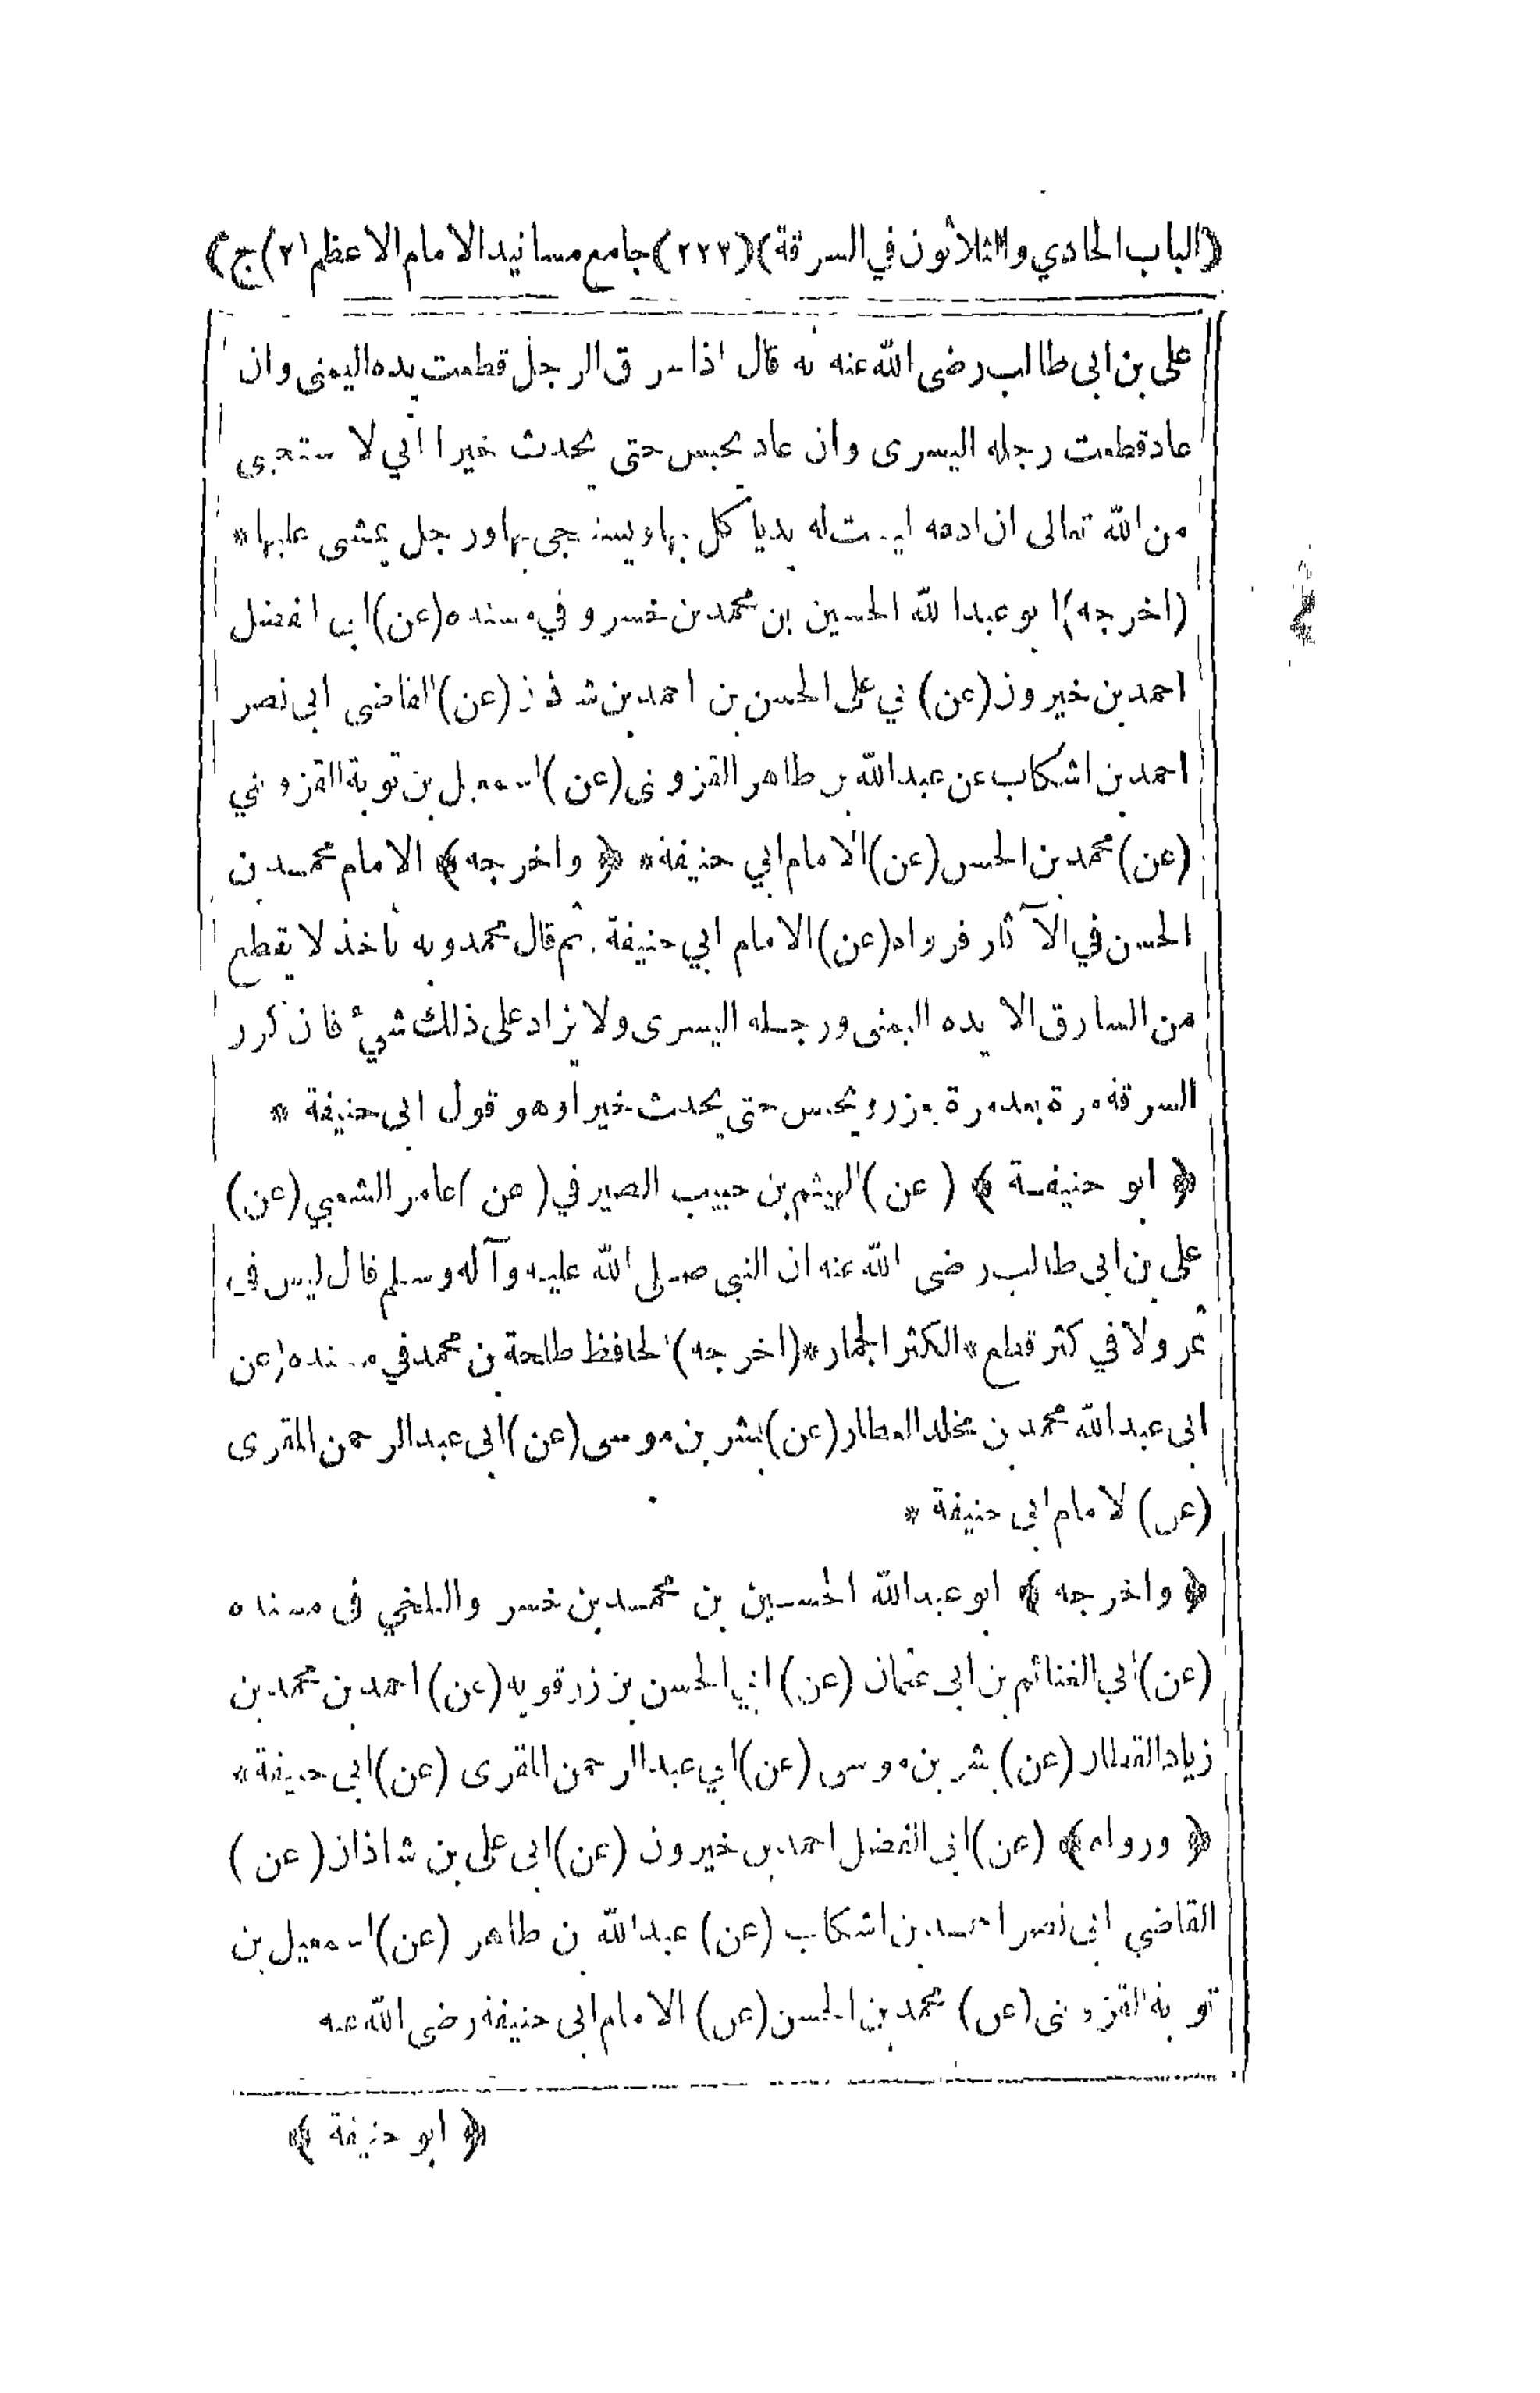 (الباب الحادي والثلاثون في السرقة) (٢٢٣) جامع مسانيد الامام الاعظم (٢) ج)
على بن ابى طالب رضى الله عنه انه قال اذا سرق الرجل قطعت يده اليمنى وان
عاد قطعت رجله اليسرى وان عاد يحبس حتى يحدث خيرا انى لا ستحيى
من الله تعالى ان ادعه ليست له يد يا كل بها ويستنجى بها ورجل يمشى عليها *
(اخرجه) ابو عبد الله الحسين بن محمد بن خسرو في مسنده (عن) ابى الفضل
احمد بن خيرون (عن) ابي على الحسن بن احمد بن شاذان (عن) القاضى ابى نصر
احمد بن اشكاب عن عبد الله بن طاهر القزوينى (عن) اسمعيل بن توبة القزويني
(عن) محمد بن الحسن (عن) الامام ابي حنيفة * ﴿ واخرجه ﴾ الامام محمد بن
الحسن في الآثار فرواه (عن) الامام ابي حنيفة . ثم قال محمد وبه نأخذ لا يقطع
من السارق الا يده اليمنى ورجله اليسرى ولا يزاد على ذلك شيء فان كرر
السرقة مرة بعد مرة يعزر ويحبس حتى يحدث خيرا وهو قول ابى حنيفة *
﴿ ابو حنيفة ﴾ (عن) الهيثم بن حبيب الصيرفي (عن) عامر الشعبي (عن)
على بن ابى طالب رضى الله عنه ان النبى صلى الله عليه وآله وسلم قال ليس فى
ثمر ولا في كثر قطع * الكثر الجمار * (اخرجه) الحافظ طلحة بن محمد في مسنده (عن
ابى عبد الله محمد بن مخلد العطار (عن) بشر بن موسى (عن) ابى عبد الرحمن المقرى
(عن) الامام ابى حنيفة *
﴿ واخرجه ﴾ ابو عبد الله الحسين بن محمد بن خسرو البلخي فى مسنده
(عن) ابي الغنائم بن ابى عثمان (عن) ابي الحسن بن زرقويه (عن) احمد بن محمد بن
زياد القطان (عن) بشر بن موسى (عن) ابي عبد الرحمن المقرى (عن) ابى حنيفة *
﴿ ورواه ﴾ (عن) ابى الفضل احمد بن خيرون (عن) ابى على بن شاذان (عن)
القاضي ابى نصر احمد بن اشكاب (عن) عبد الله بن طاهر (عن) اسمعيل بن
توبة القزوينى (عن) محمد بن الحسن (عن) الامام ابى حنيفة رضى الله عنه
﴿ ابو حنيفة ﴾